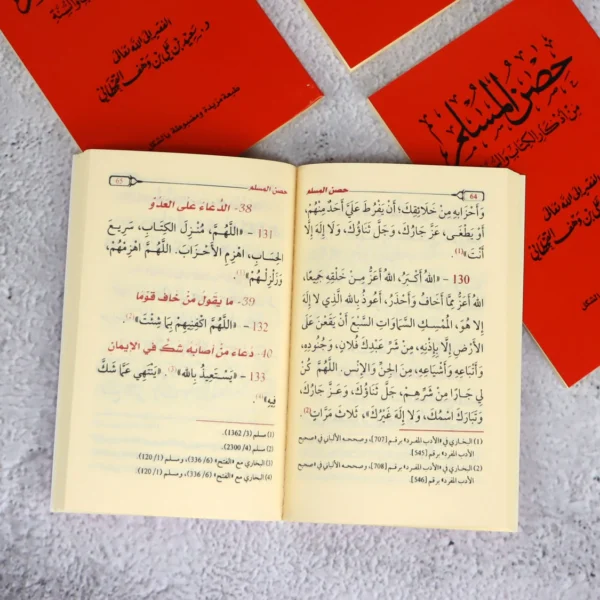 والسنة
الفقير إلى الله تعالى
د. سعيد بن علي بن وهف القحطاني
طبعة مزيدة ومضبوطة بالشكل
حصن المسلم
من أذكار الكتاب والسنة
الفقير إلى الله تعالى
حصن المسلم
64
وَأَحْزَابِهِ مِنْ خَلَائِقِكَ؛ أَنْ يَفْرُطَ عَلَيَّ أَحَدٌ مِنْهُمْ،
أَوْ يَطْغَى، عَزَّ جَارُكَ، وَجَلَّ ثَنَاؤُكَ، وَلَا إِلَهَ إِلَّا
أَنْتَ»(1).
130 - «اللهُ أَكْبَرُ، اللهُ أَعَزُّ مِنْ خَلْقِهِ جَمِيعًا،
اللهُ أَعَزُّ مِمَّا أَخَافُ وَأَحْذَرُ، أَعُوذُ بِاللهِ الَّذِي لَا إِلَهَ
إِلَّا هُوَ، الْمُمْسِكِ السَّمَاوَاتِ السَّبْعِ أَنْ يَقَعْنَ عَلَى
الْأَرْضِ إِلَّا بِإِذْنِهِ، مِنْ شَرِّ عَبْدِكَ فُلَانٍ، وَجُنُودِهِ،
وَأَتْبَاعِهِ وَأَشْيَاعِهِ، مِنَ الْجِنِّ وَالْإِنْسِ. اللَّهُمَّ كُنْ
لِي جَارًا مِنْ شَرِّهِمْ، جَلَّ ثَنَاؤُكَ، وَعَزَّ جَارُكَ،
وَتَبَارَكَ اسْمُكَ، وَلَا إِلَهَ غَيْرُكَ»، ثَلَاثَ مَرَّاتٍ(2).
(1) البخاري في «الأدب المفرد» برقم [707]، وصححه الألباني في «صحيح
الأدب المفرد» برقم [545].
(2) البخاري في «الأدب المفرد» برقم [708]، وصححه الألباني في «صحيح
الأدب المفرد» برقم [546].
حصن المسلم
65
38- الدُّعَاءُ عَلَى الْعَدُوِّ
131 - «اللَّهُمَّ، مُنْزِلَ الكِتَابِ، سَرِيعَ
الحِسَابِ، اهْزِمِ الأَحْزَابَ. اللَّهُمَّ اهْزِمْهُمْ،
وَزَلْزِلْهُمْ»(1).
39- مَا يَقُولُ مَنْ خَافَ قَوْمًا
132 - «اللَّهُمَّ اكْفِنِيهِمْ بِمَا شِئْتَ»(2).
40- دُعَاءُ مَنْ أَصَابَهُ شَكٌّ فِي الْإِيمَانِ
133 - «يَسْتَعِيذُ بِاللهِ»(3). «يَنْتَهِي عَمَّا شَكَّ
فِيهِ»(4).
(1) مسلم (3/ 1362).
(2) مسلم (4/ 2300).
(3) البخاري مع «الفتح» (6/ 336)، ومسلم (1/ 120).
(4) البخاري مع «الفتح» (6/ 336)، ومسلم (1/ 120).